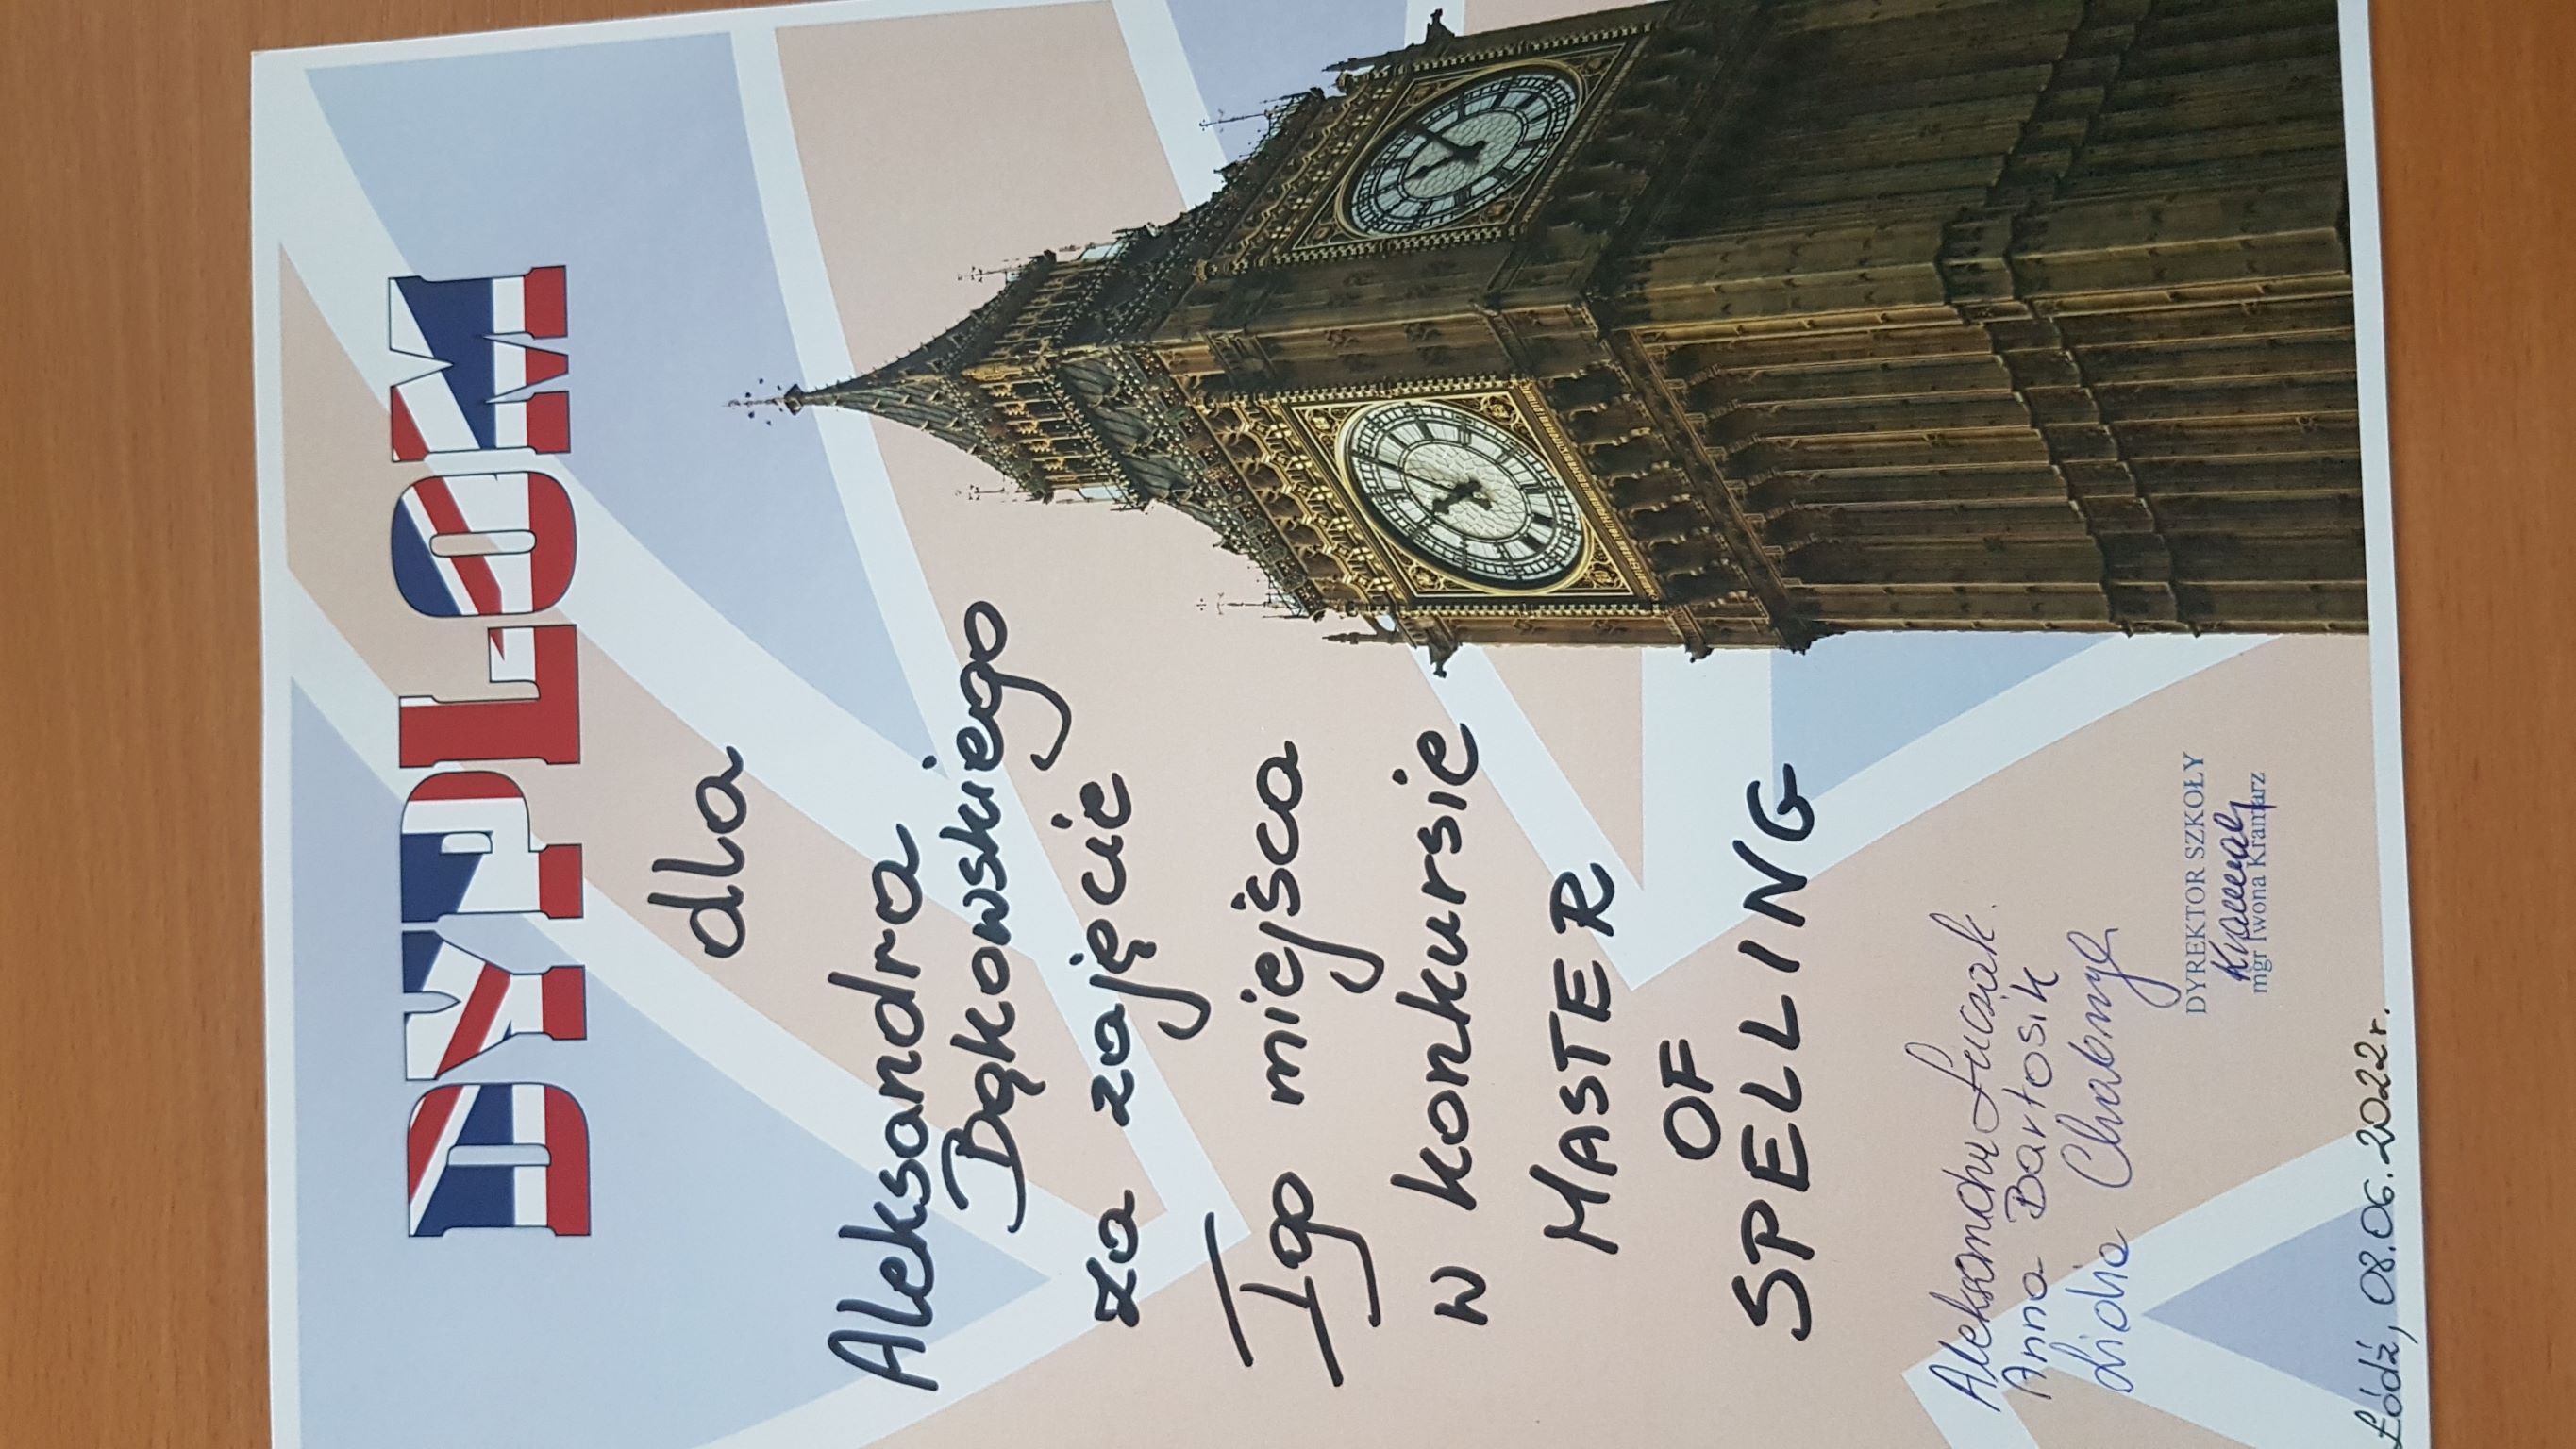 DYPLOM
dla
Aleksandra
Bąkowskiego
za zajęcie
I go miejsca
w konkursie
MASTER
OF
SPELLING
Aleksandra
Anna Bartosik
Lidia
DYREKTOR SZKOŁY
mgr Iwona Kramarz
Łódź, 08.06.2022r.